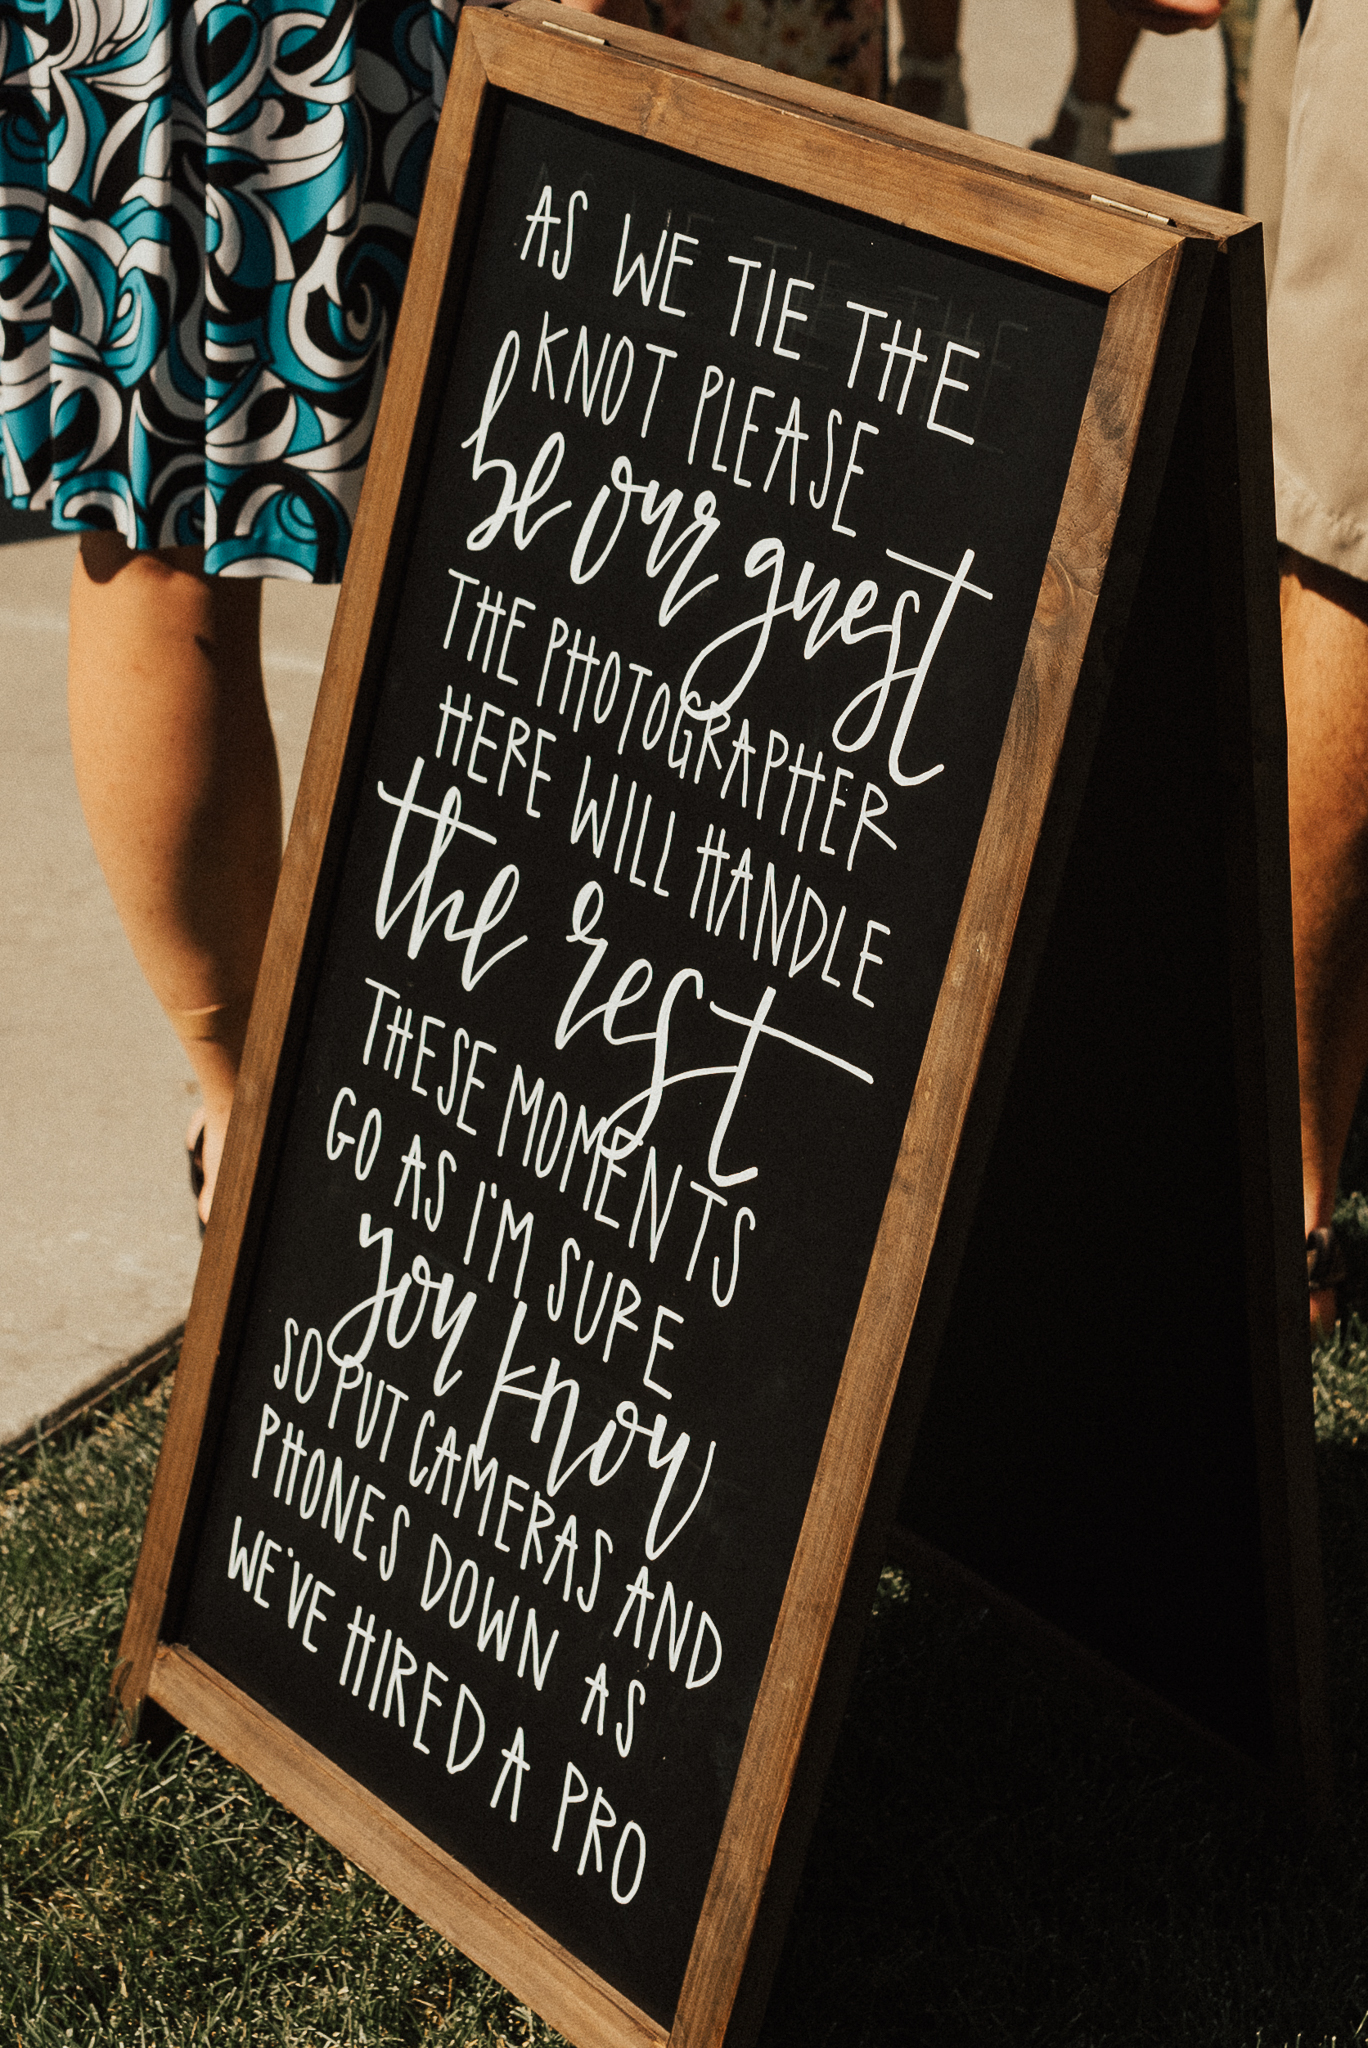 AS WE TIE THE
KNOT PLEASE
be our guest
THE PHOTOGRAPHER
HERE WILL HANDLE
the rest
THESE MOMENTS
GO AS I'M SURE
you know
SO PUT CAMERAS AND
PHONES DOWN AS
WE'VE HIRED A PRO